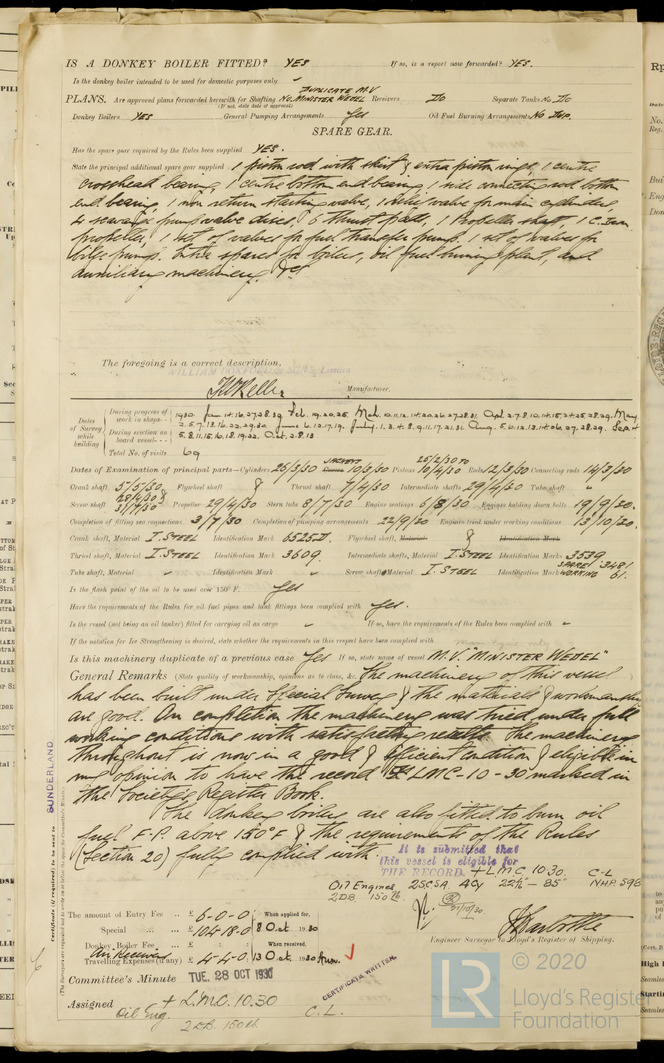 IS A DONKEY BOILER FITTED? YES If so, is a report now forwarded? YES.
Is the donkey boiler intended to be used for domestic purposes only
DUPLICATE M.V
PLANS. Are approved plans forwarded herewith for Shafting No. MINISTER WEDEL Receivers Do Separate Tanks No. Do
(If not, state date of approval)
Donkey Boilers YES General Pumping Arrangements Yes Oil Fuel Burning Arrangements No Dup.
SPARE GEAR.
Has the spare gear required by the Rules been supplied YES.
State the principal additional spare gear supplied 1 piston rod with skirt & extra piston rings, 1 centre
crosshead bearing, 1 centre bottom end bearing, 1 side connecting rod bottom
end bearing, 1 non return starting valve, 1 relief valve for main cylinders,
4 scavenge pump valve discs, 6 thrust pads, 1 Propeller shaft, 1 C. Iron
propeller, 1 set of valves for fuel transfer pumps. 1 set of valves for
bilge pumps. Entire spares for boilers, oil fuel burning plant, and
auxiliary machinery &c
The foregoing is a correct description.
Manufacturer.
Dates of Survey while building
During progress of work in shops - - 1930 Jan. 14.16.27.28.29. Feb. 19.20.25. Mch. 10.11.12.14.20.26.27.28.31. Apl. 2.7.8.10.14.15.24.25.28.29. May
During erection on board vessel - - - 2.5.7.13.16.22.29.30 June 6.12.17.19. July. 1.3.4.8.9.11.17.21.31 Aug. 5.6.12.13.14.26.27.28.29. Sept
5.8.11.15.16.18.19.22. Oct. 2.8.13
Total No. of visits 69
JACKETS 25/2/30 TO
Dates of Examination of principal parts—Cylinders 25/3/30 Covers 10/3/30 Pistons 10/4/30 Rods 12/3/30 Connecting rods 14/3/30
Crank shaft 5/5/30. Flywheel shaft Thrust shaft 7/4/30 Intermediate shafts 29/4/30 Tube shaft "
28/4/30 &
Screw shaft 31/7/30 Propeller 29/4/30 Stern tube 8/7/30 Engine seatings 5/8/30 Engines holding down bolts 19/9/30.
Completion of fitting sea connections 3/7/30 Completion of pumping arrangements 22/9/30 Engines tried under working conditions 13/10/30.
Crank shaft, Material I. STEEL Identification Mark 6525 Flywheel shaft, Material Identification Mark
Thrust shaft, Material I. STEEL Identification Mark 3609. Intermediate shafts, Material I. STEEL Identification Marks 3539
SPARE 3481
Tube shaft, Material Identification Mark Screw shaft, Material I. STEEL Identification Mark WORKING 61.
Is the flash point of the oil to be used over 150° F. Yes
Have the requirements of the Rules for oil fuel pipes and tank fittings been complied with Yes.
Is the vessel (not being an oil tanker) fitted for carrying oil as cargo If so, have the requirements of the Rules been complied with
If the notation for Ice Strengthening is desired, state whether the requirements in this respect have been complied with
Is this machinery duplicate of a previous case Yes If so, state name of vessel M.V. "MINISTER WEDEL"
General Remarks (State quality of workmanship, opinions as to class, &c. The machinery of this vessel
has been built under special survey & the materials & workmanship
are good. On completion the machinery was tried under full
working conditions with satisfactory results. The machinery
throughout is now in a good & efficient condition & eligible in
my opinion to have the record + LMC-10-30 marked in
the Society's Register Book.
The donkey boilers are also fitted to burn oil
fuel F.P. above 150°F & the requirements of the Rules
(Section 20) fully complied with.
It is submitted that
this vessel is eligible for
THE RECORD. + LMC 10.30. C-L
Oil Engines 2SCSA 4Cy 22½" - 85" NHP 596
2DB 150 lb
The amount of Entry Fee .. £ 6-0-0 When applied for,
Special .. £ 104-18-0 8 Oct. 1930
Donkey Boiler Fee ... £ When received,
Travelling Expenses (if any) £ 4-4-0 13 Oct. 1930
Engineer Surveyor to Lloyd's Register of Shipping.
Committee's Minute TUE. 28 OCT 1930
CERTIFICATE WRITTEN.
Assigned + LMC. 10.30
Oil Eng. C.L.
2DB. 150lb
SUNDERLAND
Certificate (if required) to be sent to
© 2020
LR Lloyd's Register
Foundation